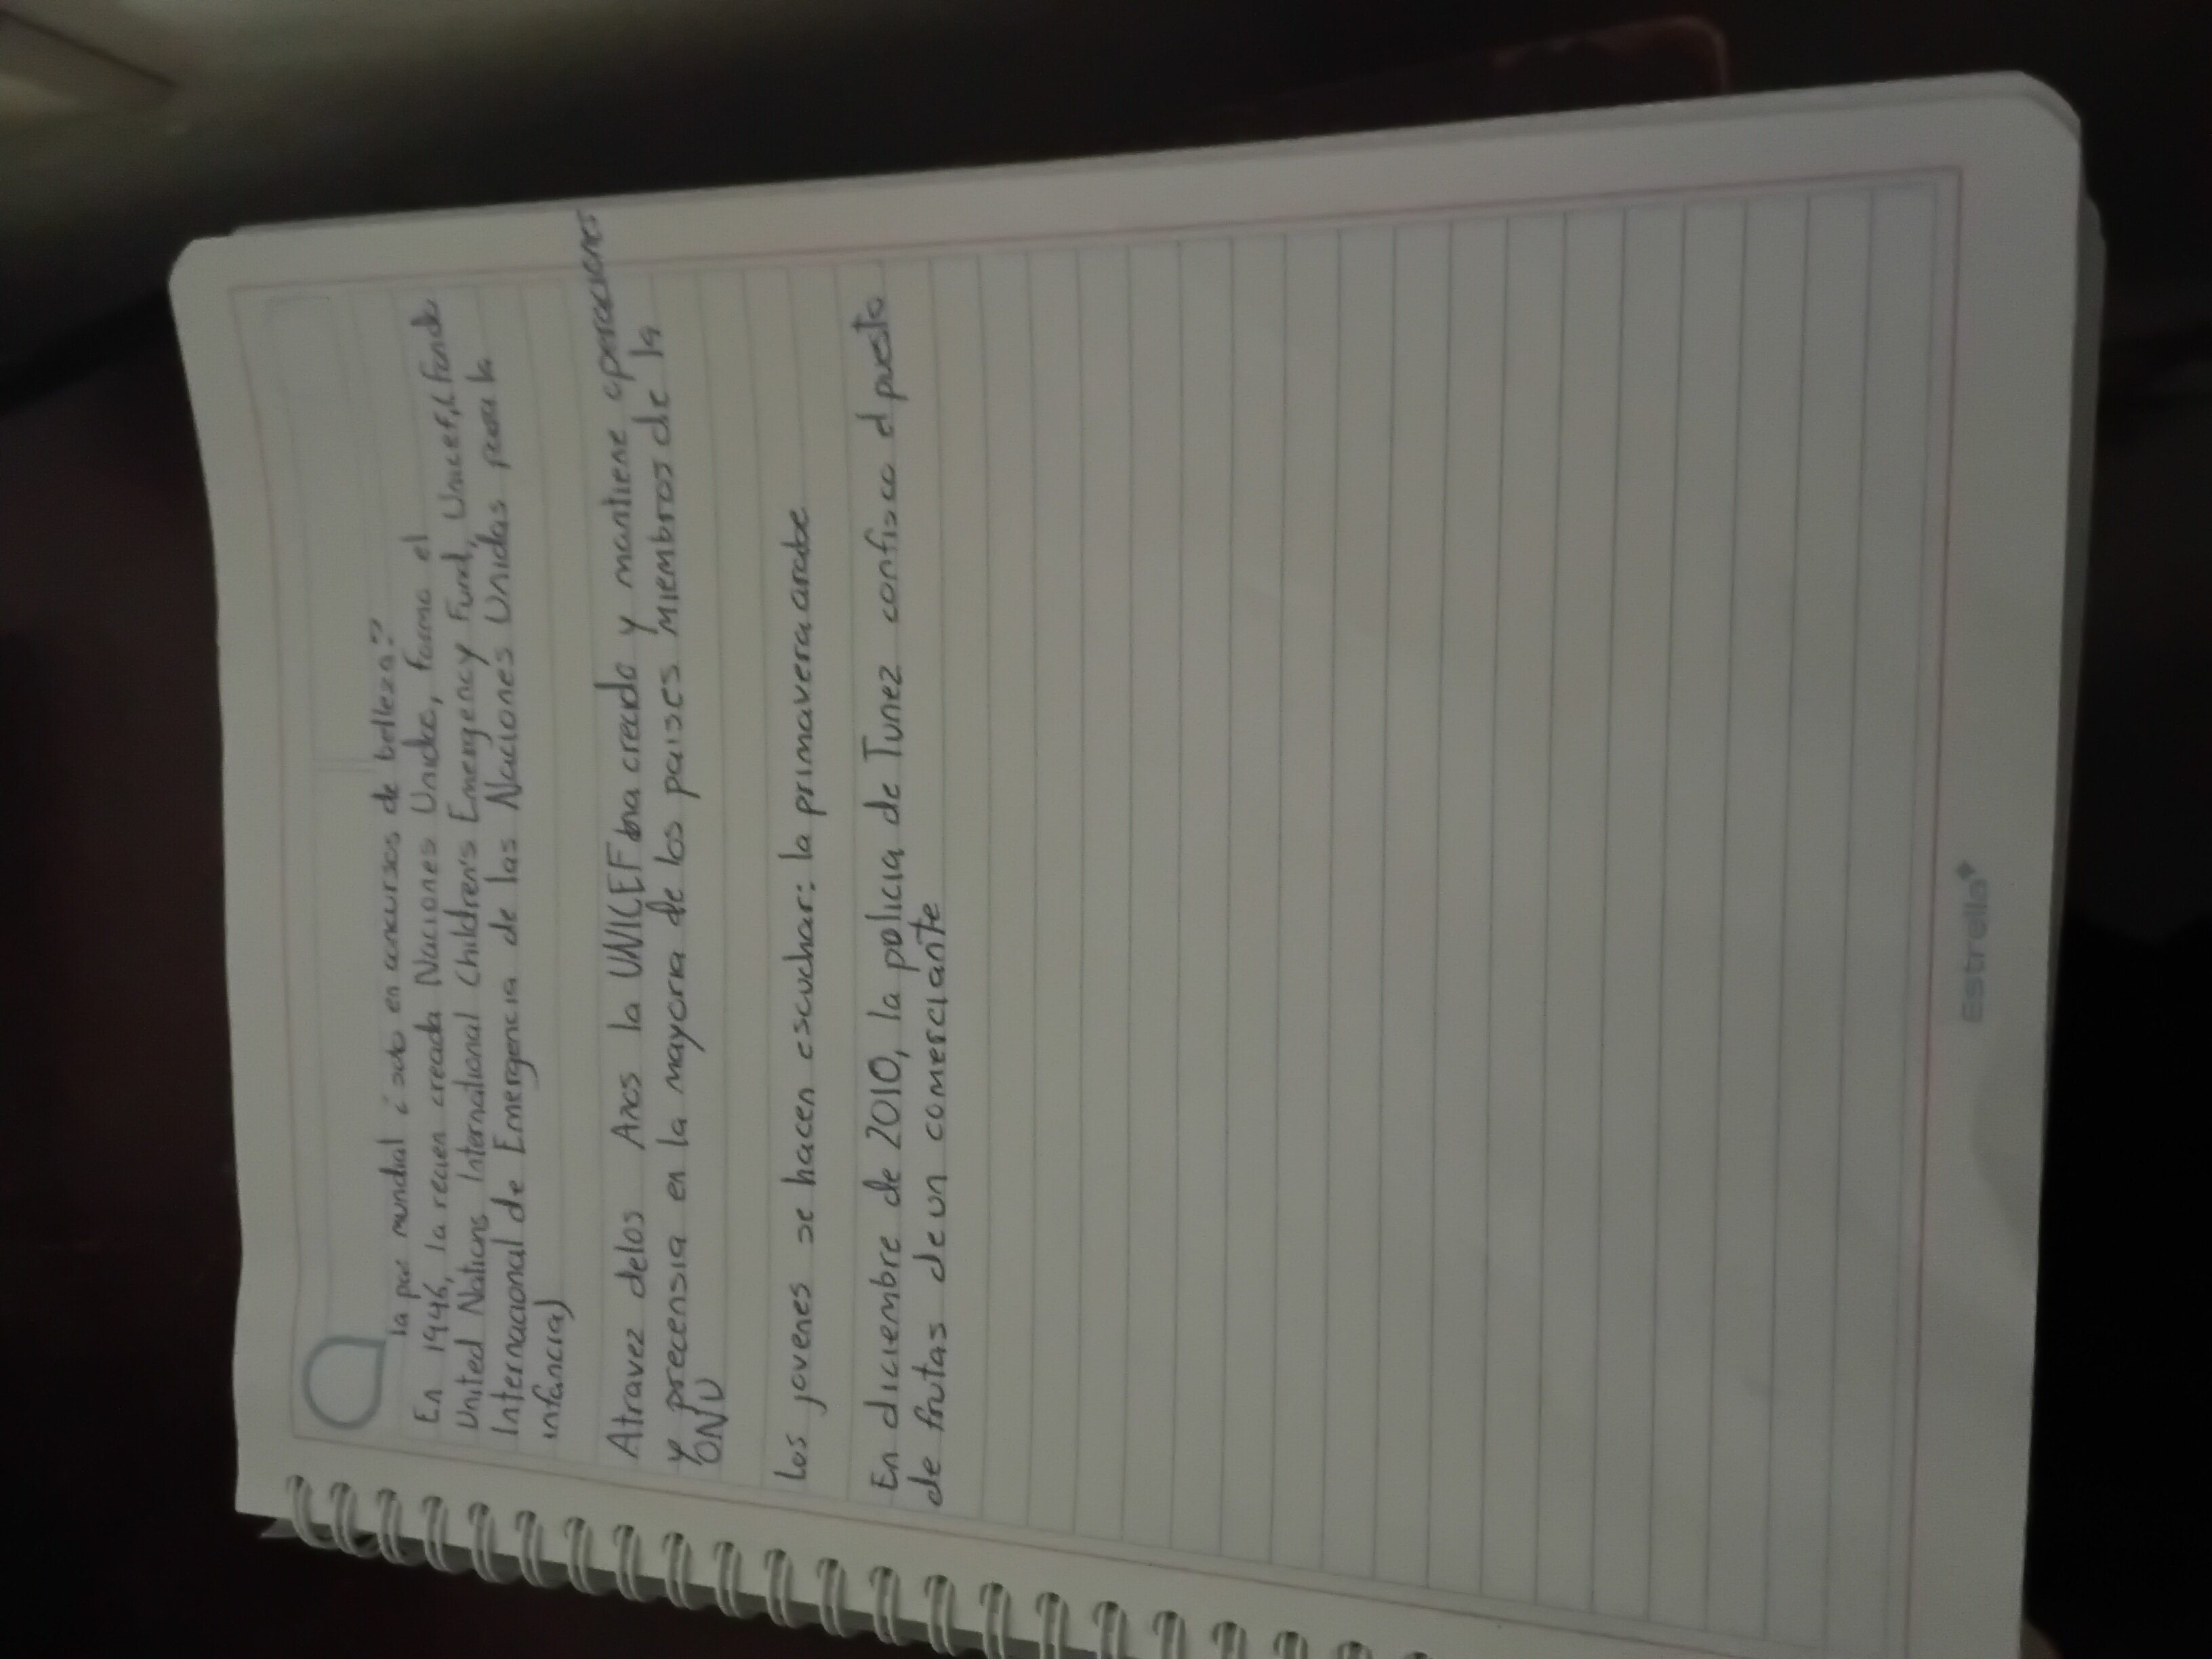 la paz mundial ¿solo en concursos de belleza?
En 1946, la recien creada Naciones Unidas, forma el
United Nations International Children's Emergency Fund, Unicef, (Fondo
Internacional de Emergencia de las Naciones Unidas para la
infancia)
Atravez delos Años la UNICEF ha crecido y mantiene operaciones
y precensia en la mayoria de los paises miembros de la
ONU
Los jovenes se hacen escuchar: la primavera arabe
En diciembre de 2010, la policia de Tunez confisco el puesto
de frutas de un comerciante
Estrella